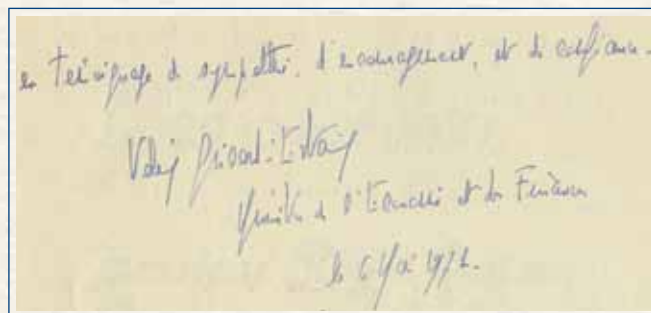 en témoignage de sympathie, d'encouragement, et de confiance.
Valéry Giscard d'Estaing
Ministre de l'Economie et des Finances
le 6 Mai 197